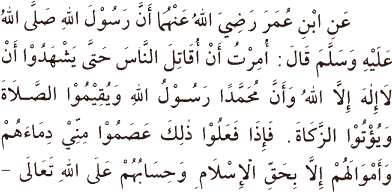 عَنِ ابْنِ عُمَرَ رَضِيَ اللهُ عَنْهُمَا أَنَّ رَسُوْلَ اللهِ صَلَّى اللهُ
عَلَيْهِ وَسَلَّمَ قَالَ: أُمِرْتُ أَنْ أُقَاتِلَ النَّاسَ حَتَّى يَشْهَدُوْا أَنْ
لاَإِلٰهَ إِلاَّ اللهُ وَأَنَّ مُحَمَّدًا رَسُوْلُ اللهِ وَيُقِيْمُوْا الصَّلاَةَ
وَيُؤْتُوْا الزَّكَاةَ. فَإِذَا فَعَلُوْا ذٰلِكَ عَصَمُوْا مِنِّيْ دِمَاءَهُمْ
وَأَمْوَالَهُمْ إِلاَّ بِحَقِّ الْإِسْلاَمِ وَحِسَابُهُمْ عَلَى اللهِ تَعَالَى –